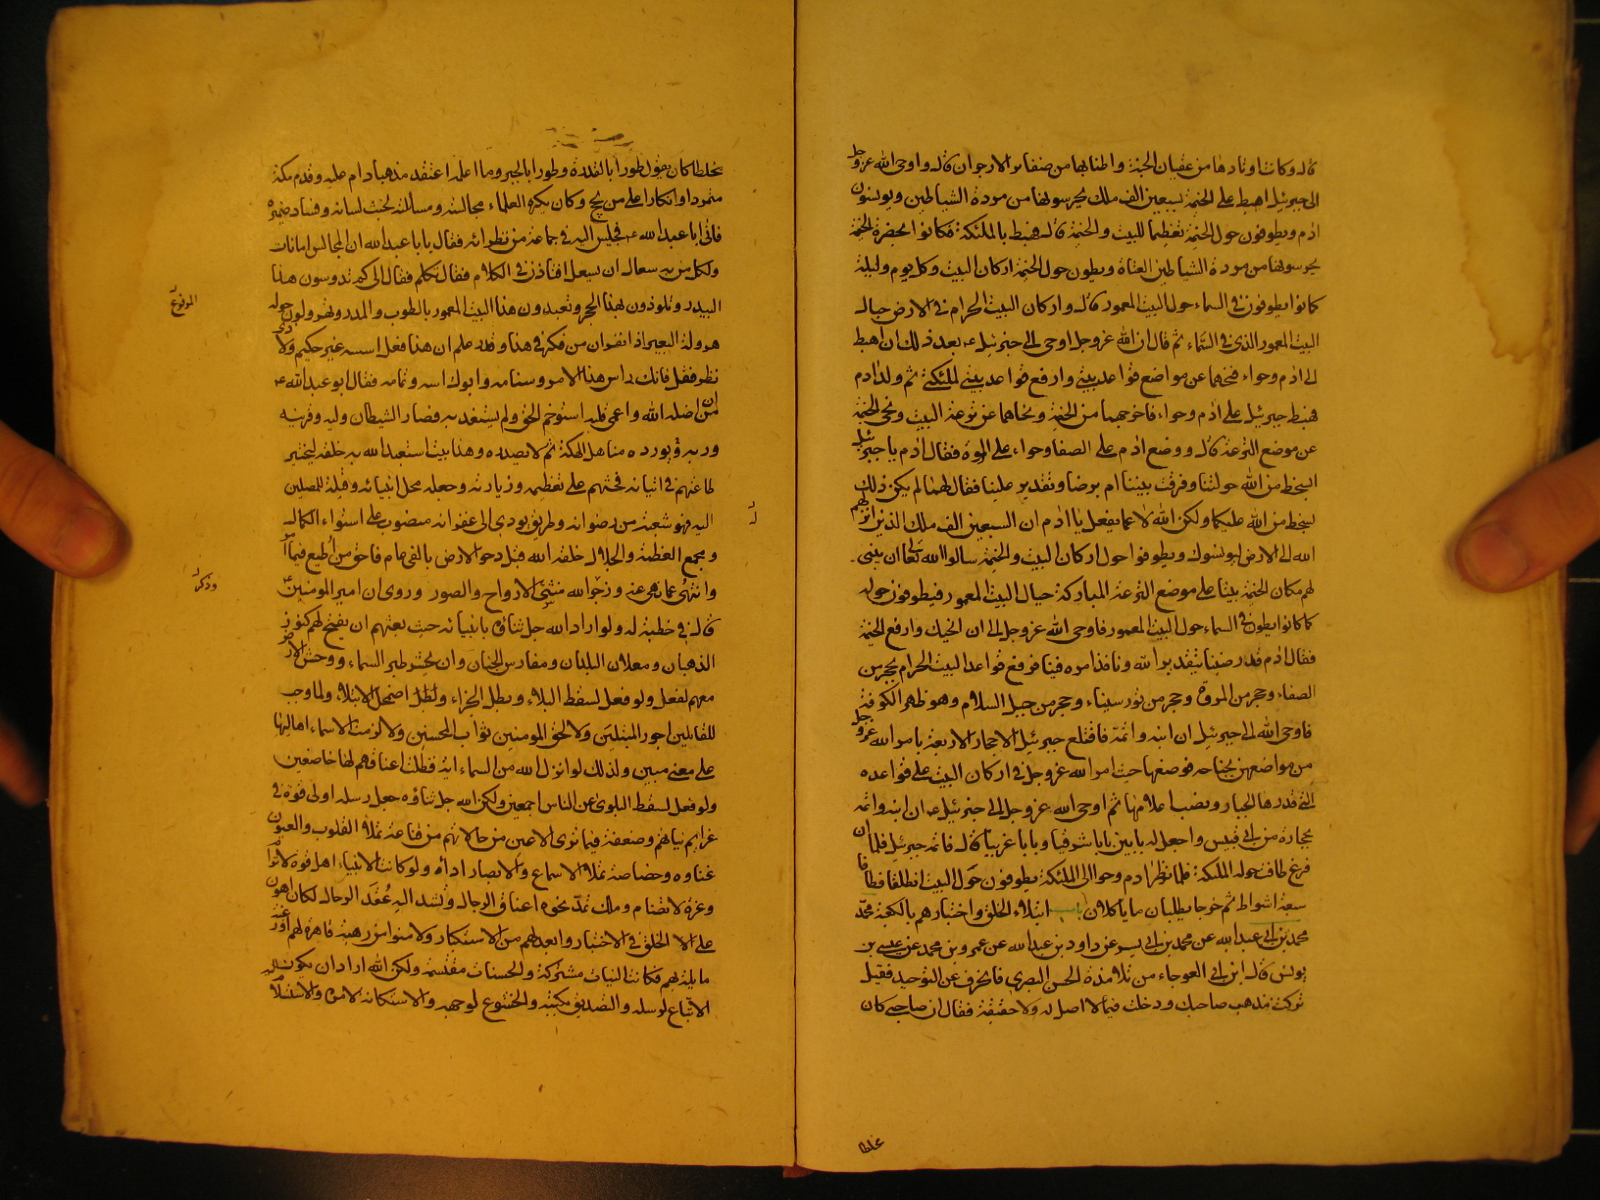 قال وكانت اوتادها من عقيان الجنة واطنابها من ضفائر الارجوان قال واوحى الله عز وجل
الى جبرئيل اهبط على الخيمة بسبعين الف ملك يحرسونها من مردة الشياطين ويونسون
ادم ويطوفون حول الخيمة تعظيما للبيت والخيمة قال فهبط بالملئكة فكانوا بحضرة الخيمة
يحرسونها من مردة الشياطين العتاة ويطوفون حول الخيمة اركان البيت وكل يوم وليلة
كما كانوا يطوفون في السماء حول البيت المعمور قال واركان البيت الحرام في الارض حيال
البيت المعمور الذي في السماء ثم قال ان الله عز وجل اوحى الى جبرئيل بعد ذلك ان اهبط
الى ادم وحواء فنحهما عن مواضع قواعد بيتي وارفع قواعد بيتي لملئكتي ثم ولد ادم
فهبط جبرئيل على ادم وحواء فاخرجهما من الخيمة ونحاهما عن ترعة البيت ونحى الخيمة
عن موضع الترعة قال ووضع ادم على الصفا وحواء على المروة فقال ادم يا جبرئيل
ابسخط من الله حولتنا وفرقت بيننا ام برضا وتقدير علينا فقال لهما لم يكن ذلك
بسخط من الله عليكما ولكن الله لا يسئل عما يفعل يا ادم ان السبعين الف ملك الذين انزلهم
الله الى الارض ليونسوك ويطوفوا حول اركان البيت والخيمة سالوا الله تعالى ان يبني
لهم مكان الخيمة بيتا على موضع الترعة المباركة حيال البيت المعمور فيطوفون حوله
كما كانوا يطوفون في السماء حول البيت المعمور فاوحى الله عز وجل الى ان انحيك وارفع الخيمة
فقال ادم قد رضينا بتقدير الله ونافذ امره فينا فرفع قواعد البيت الحرام بحجر من
الصفا وحجر من المروة وحجر من طور سيناء وحجر من جبل السلام وهو ظهر الكوفة
فاوحى الله الى جبرئيل ان ابنه واتمه فاقتلع جبرئيل الاحجار الاربعة بامر الله عز وجل
من مواضعهن بجناحه فوضعها حيث امر الله عز وجل في اركان البيت على قواعده
التي قدرها الجبار ونصب اعلامها ثم اوحى الله عز وجل الى جبرئيل ان ابنه واتمه
بحجارة من ابي قبيس واجعل له بابين بابا شرقيا وبابا غربيا قال فاتمه جبرئيل فلما ان
فرغ طاف حوله الملئكة فلما نظر ادم وحوا الى الملئكة يطوفون حول البيت انطلقا فطافا
سبعة اشواط ثم خرجا يطلبان ما ياكلان باب ابتلاء الخلق واختبارهم بالكعبة محمد
محمد بن ابي عبد الله عن محمد بن ابي يسر عن داود بن عبد الله عن عمرو بن محمد عن عيسى بن
يونس قال ابن ابي العوجاء من تلامذة الحسن البصري فانحرف عن التوحيد فقيل
تركت مذهب صاحبك ودخلت فيما لا اصل له ولا حقيقة فقال ان صاحبي كان
مخلطا
مخلطا كان يقول طورا بالقدر وطورا بالجبر وما اعلمه اعتقد مذهبا دام عليه وقدم مكة
متمردا وانكارا على من يحج وكان يكره العلماء مجالسته ومسائلته لخبث لسانه وفساد ضميره
فاتى ابا عبد الله ع فجلس اليه في جماعة من نظرائه فقال يا ابا عبد الله ان المجالس امانات
ولكل من به سعال ان يسعل افتاذن في الكلام فقال تكلم فقال الى كم تدوسون هذا
البيدر وتلوذون بهذا الحجر وتعبدون هذا البيت المعمور بالطوب والمدر وتهرولون حوله
هرولة البعير اذا نفر ان من فكر في هذا وقدر علم ان هذا فعل اسسه غير حكيم ولا ذي
نظر فقل فانك راس هذا الامر وسنامه وابوك اسه وتمامه فقال ابو عبد الله ع
ان من اضله الله واعمى قلبه استوخم الحق ولم يستعذ به فصار الشيطان وليه وقرينه
وربه ويورده مناهل الهلكة ثم لا يصدره وهذا بيت استعبد الله به خلقه ليختبر
طاعتهم في اتيانه فحثهم على تعظيمه وزيارته وجعله محل انبيائه وقبلة للمصلين
اليه فهو شعبة من رضوانه وطريق يودي الى غفرانه منصوب على استواء الكمال
ومجمع العظمة والجلال خلقه الله قبل دحو الارض بالفي عام فاحق من اطيع فيما امر
وانتهى عما نهى عنه وزجر الله منشئ الارواح والصور وروي ان امير المومنين
قال في خطبة له ولو اراد الله جل ثناؤه بانبيائه حيث بعثهم ان يفتح لهم كنوز
الذهبان ومعادن البلدان ومغارس الجنان وان يحشر طير السماء ووحش الارض
معهم لفعل ولو فعل لسقط البلاء وبطل الجزاء واضمحل الابتلاء ولما وجب
للقائلين اجور المبتلين ولا لحق المومنين ثواب المحسنين ولا لزمت الاسماء اهاليها
على معنى مبين ولذلك لو انزل الله من السماء اية فظلت اعناقهم لها خاضعين
ولو فعل لسقط البلوى عن الناس اجمعين ولكن الله جل ثناؤه جعل رسله اولي قوة في
عزايم نياتهم وضعفة فيما ترى الاعين من حالاتهم من قناعة تملا القلوب والعيون
غناوه وخصاصة تملا الاسماع والابصار اداه ولو كانت الانبياء اهل قوة لا ترام
وعزة لا تضام وملك تمد نحوه اعناق الرجال وتشد اليه عقد الرحال لكان اهون
على الخلق في الاختبار وابعد لهم من الاستكبار ولامنوا من رهبة قاهرة لهم او رغبة
مايلة بهم فكانت النيات مشتركة والحسنات مقتسمة ولكن الله اراد ان يكون
الاتباع لرسله والتصديق بكتبه والخشوع لوجهه والاستكانة لامره والاستسلام